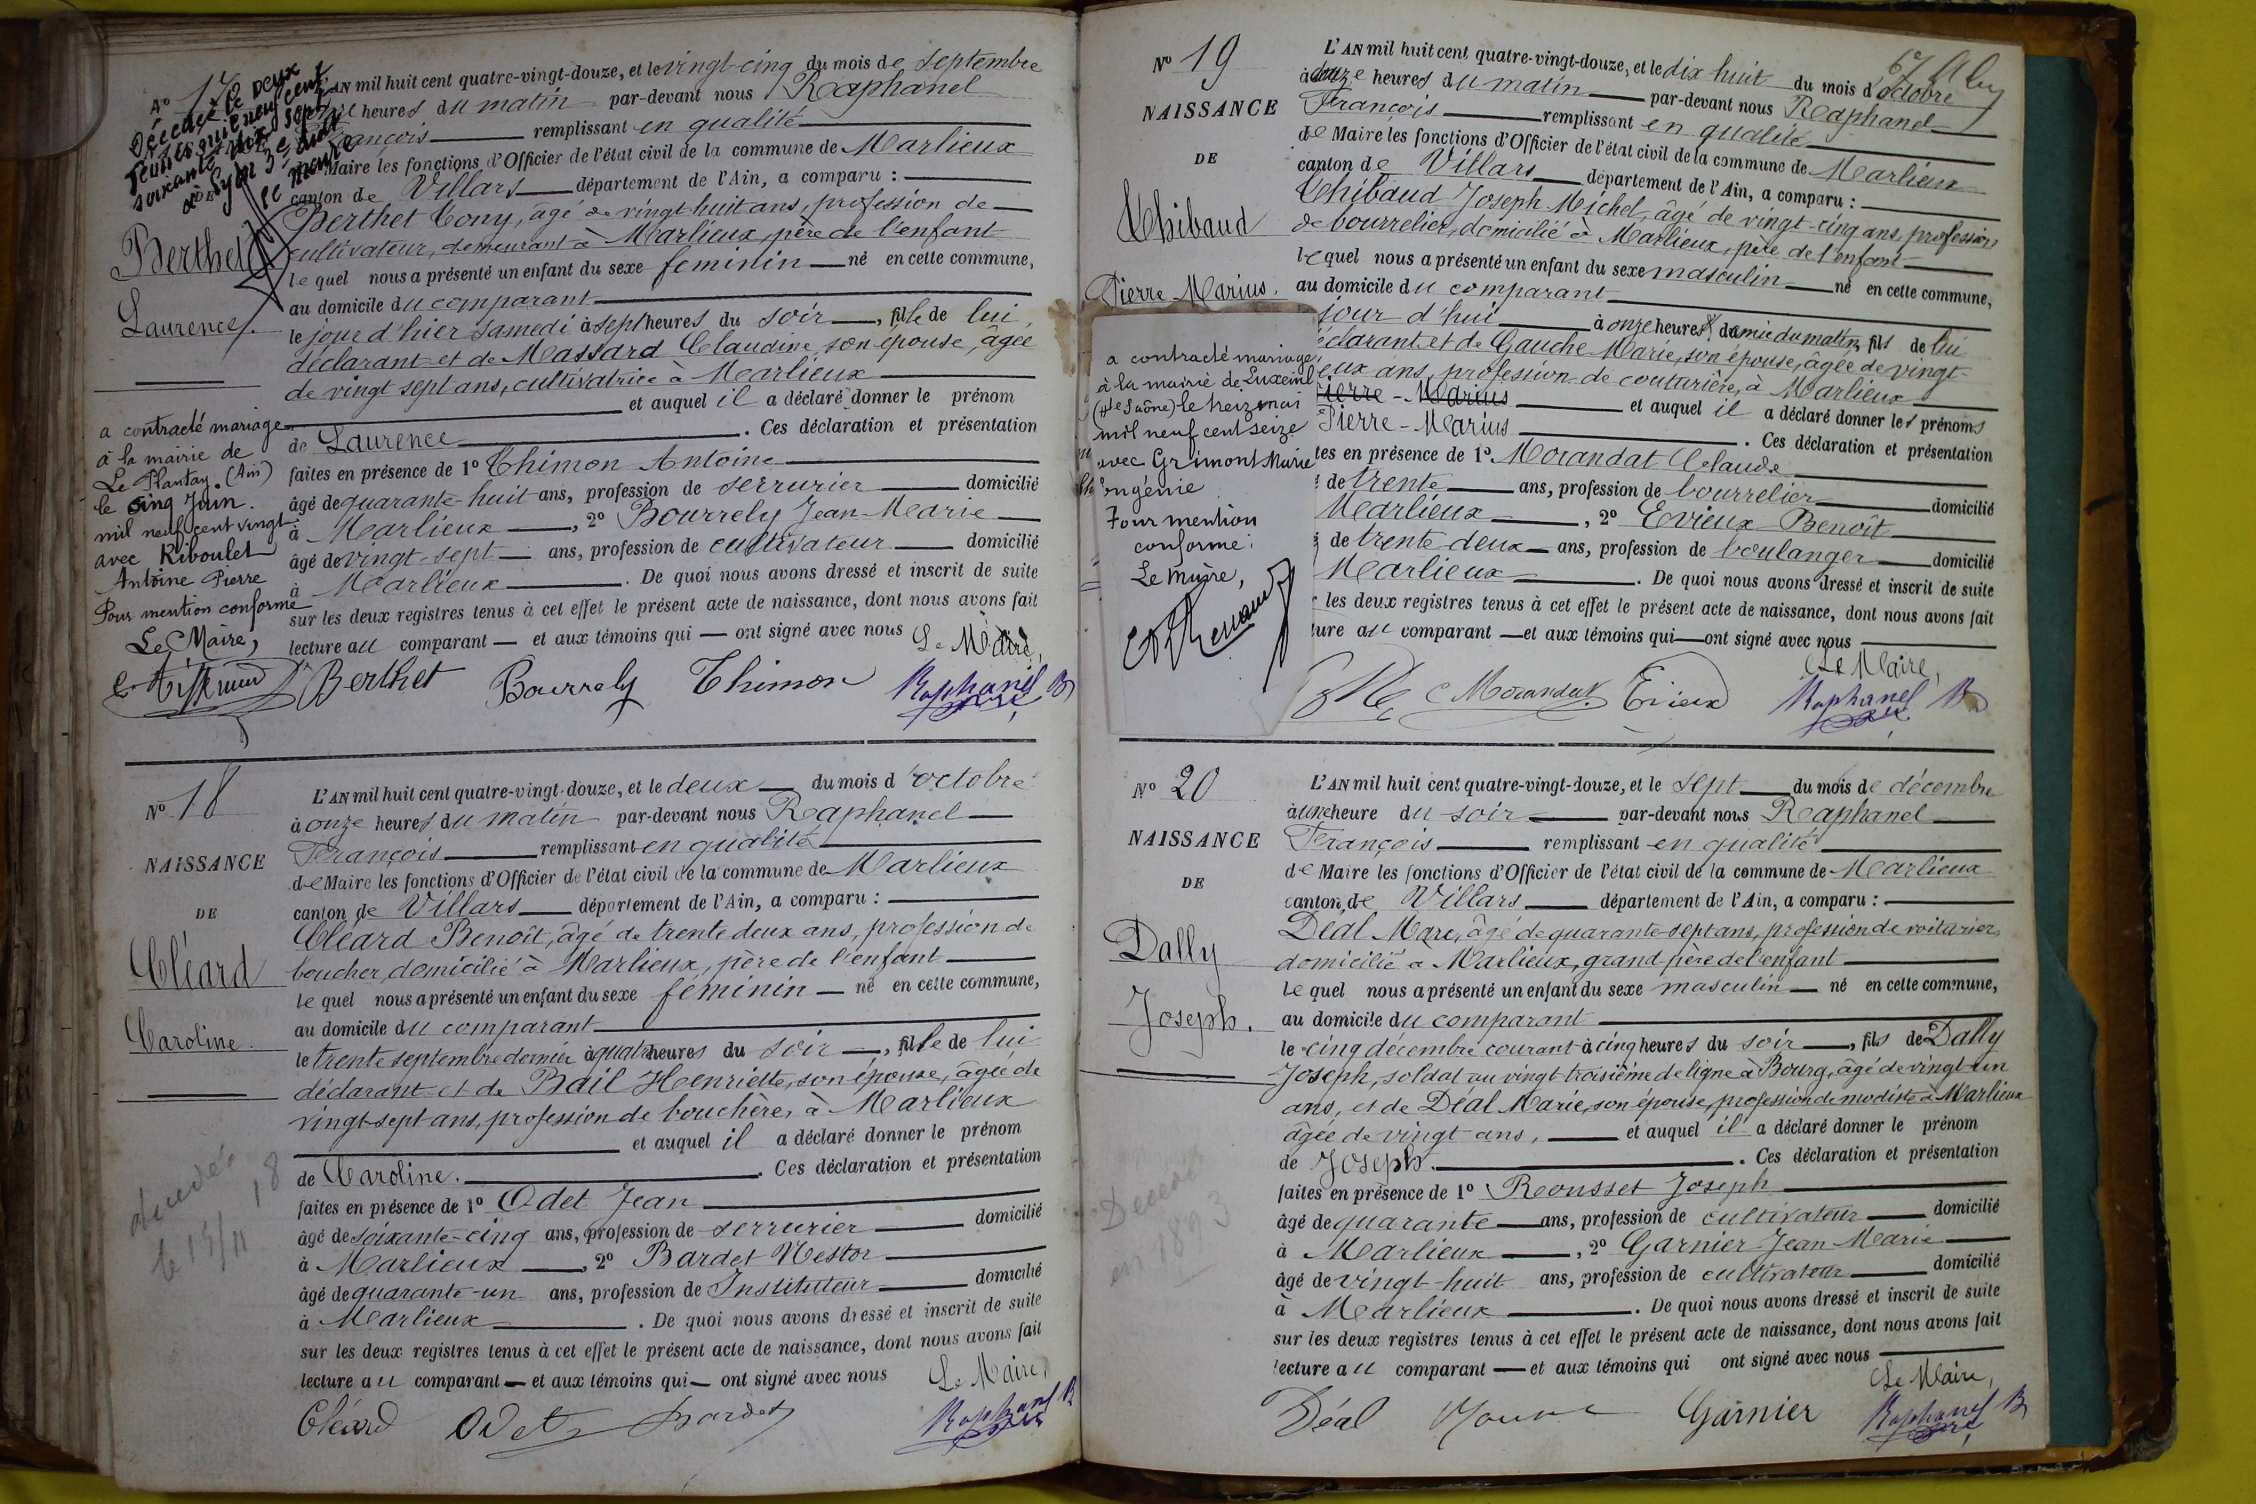 No 17
Décédée le deux
soixante dix sept
à Lyon 3e
Le Maire
L'AN mil huit cent quatre-vingt-douze, et le vingt-cinq du mois de septembre
heures du matin par-devant nous Raphanel
François remplissant en qualité
de Maire les fonctions d'Officier de l'état civil de la commune de Marlieux
canton de Villars département de l'Ain, a comparu :
Berthet Tony, âgé de vingt-huit ans, profession de
cultivateur, demeurant à Marlieux, père de l'enfant
le quel nous a présenté un enfant du sexe feminin né en cette commune,
au domicile du comparant
le jour d'hier samedi à sept heures du soir, fille de lui
déclarant et de Massard Claudine, son épouse, âgée
de vingt sept ans, cultivatrice à Marlieux
et auquel il a déclaré donner le prénom
de Laurence. Ces déclaration et présentation
faites en présence de 1º Thimon Antoine
âgé de quarante-huit ans, profession de serrurier domicilié
à Marlieux, 2º Bourrely Jean-Marie
âgé de vingt-sept ans, profession de cultivateur domicilié
à Marlieux. De quoi nous avons dressé et inscrit de suite
sur les deux registres tenus à cet effet le présent acte de naissance, dont nous avons fait
lecture au comparant et aux témoins qui ont signé avec nous Le Maire,
Berthet Bourrely Thimon Raphanel
Berthet
Laurence.
a contracté mariage
à la mairie de
Le Plantay (Ain)
le cinq Juin
mil neuf cent vingt
avec Riboulet
Antoine Pierre
Pour mention conforme
Le Maire,
No 18
NAISSANCE
DE
Cléard
Caroline.
décédée
L'AN mil huit cent quatre-vingt-douze, et le deux du mois d'octobre
à onze heures du matin par-devant nous Raphanel
François remplissant en qualité
de Maire les fonctions d'Officier de l'état civil de la commune de Marlieux
canton de Villars département de l'Ain, a comparu :
Cléard Benoît, âgé de trente deux ans, profession de
boucher, domicilié à Marlieux, père de l'enfant
le quel nous a présenté un enfant du sexe feminin né en cette commune,
au domicile du comparant
le trente septembre dernier à quatre heures du soir, fille de lui
déclarant et de Bail Henriette, son épouse, âgée de
vingt-sept ans, profession de bouchère, à Marlieux
et auquel il a déclaré donner le prénom
de Caroline. Ces déclaration et présentation
faites en présence de 1º Odet Jean
âgé de soixante-cinq ans, profession de serrurier domicilié
à Marlieux, 2º Bardet Nestor
âgé de quarante-un ans, profession de Instituteur domicilié
à Marlieux. De quoi nous avons dressé et inscrit de suite
sur les deux registres tenus à cet effet le présent acte de naissance, dont nous avons fait
lecture au comparant et aux témoins qui ont signé avec nous Le Maire,
Cléard Odet Bardet Raphanel
No 19
NAISSANCE
DE
Thibaud
Pierre Marius.
a contracté mariage
à la mairie de Luxeuil
(Hte Saône) le treize mai
mil neuf cent seize
avec Grimont Marie
Eugénie
Pour mention
conforme:
Le Maire,
67
L'AN mil huit cent quatre-vingt-douze, et le dix huit du mois d'octobre
à onze heures du matin par-devant nous Raphanel
François remplissant en qualité
de Maire les fonctions d'Officier de l'état civil de la commune de Marlieux
canton de Villars département de l'Ain, a comparu :
Thibaud Joseph Michel, âgé de vingt-cinq ans, profession
de bourrelier, domicilié à Marlieux, père de l'enfant
le quel nous a présenté un enfant du sexe masculin né en cette commune,
au domicile du comparant
jour d'hui à onze heures du matin, fils de lui
déclarant et de Gauche Marie, son épouse, âgée de vingt-
deux ans, profession de couturière, à Marlieux
Pierre-Marius et auquel il a déclaré donner les prénoms
Pierre-Marius. Ces déclaration et présentation
tes en présence de 1º Morandat Claude
de trente ans, profession de bourrelier domicilié
Marlieux, 2º Evieux Benoît
de trente-deux ans, profession de boulanger domicilié
Marlieux. De quoi nous avons dressé et inscrit de suite
les deux registres tenus à cet effet le présent acte de naissance, dont nous avons fait
ture au comparant et aux témoins qui ont signé avec nous
Le Maire,
Morandat Evieux Raphanel
No 20
NAISSANCE
DE
Dally
Joseph.
Décédé
en 1893
L'AN mil huit cent quatre-vingt-douze, et le sept du mois de décembre
à une heure du soir par-devant nous Raphanel
François remplissant en qualité
de Maire les fonctions d'Officier de l'état civil de la commune de Marlieux
canton de Villars département de l'Ain, a comparu :
Déal Marc, âgé de quarante-sept ans, profession de voiturier,
domicilié à Marlieux, grand père de l'enfant
le quel nous a présenté un enfant du sexe masculin né en cette commune,
au domicile du comparant
le cinq décembre courant à cinq heures du soir, fils de Dally
Joseph, soldat au vingt-troisième de ligne à Bourg, âgé de vingt-un
ans, et de Déal Marie, son épouse, profession de modiste à Marlieux
âgée de vingt ans, et auquel il a déclaré donner le prénom
de Joseph. Ces déclaration et présentation
faites en présence de 1º Rousset Joseph
âgé de quarante ans, profession de cultivateur domicilié
à Marlieux, 2º Garnier Jean-Marie
âgé de vingt-huit ans, profession de cultivateur domicilié
à Marlieux. De quoi nous avons dressé et inscrit de suite
sur les deux registres tenus à cet effet le présent acte de naissance, dont nous avons fait
lecture au comparant et aux témoins qui ont signé avec nous
Le Maire,
Déal Garnier Raphanel